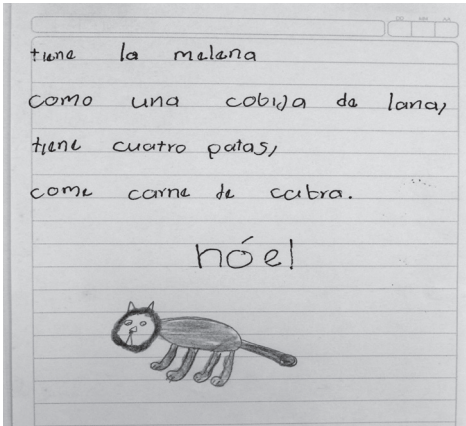 tiene la melena
como una cobija de lana,
tiene cuatro patas,
come carne de cabra.
nóel